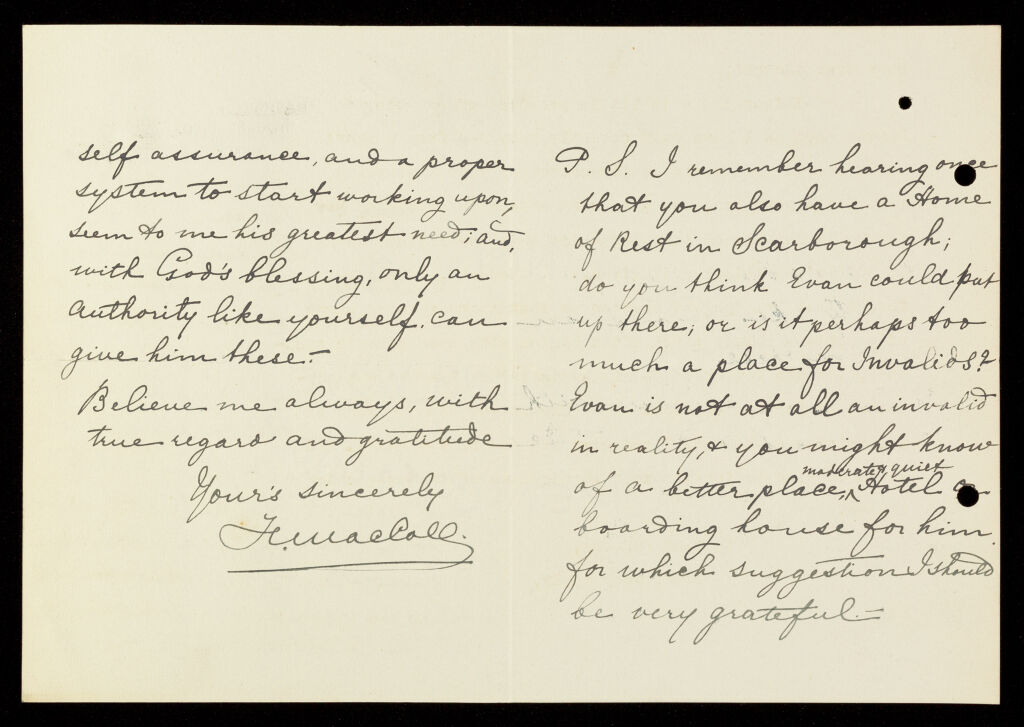 self assurance, and a proper
system to start working upon,
seem to me his greatest need; and,
with God's blessing, only an
authority like yourself can
give him these.-
Believe me always, with
true regard and gratitude
Your's sincerely
H. MacColl.
P. S. I remember hearing once
that you also have a Home
of Rest in Scarborough;
do you think Evan could put
up there, or is it perhaps too
much a place for Invalids?
Evan is not at all an invalid
in reality, & you might know
moderate & quiet
of a better place, Hotel or
boarding house for him,
for which suggestion I should
be very grateful.-